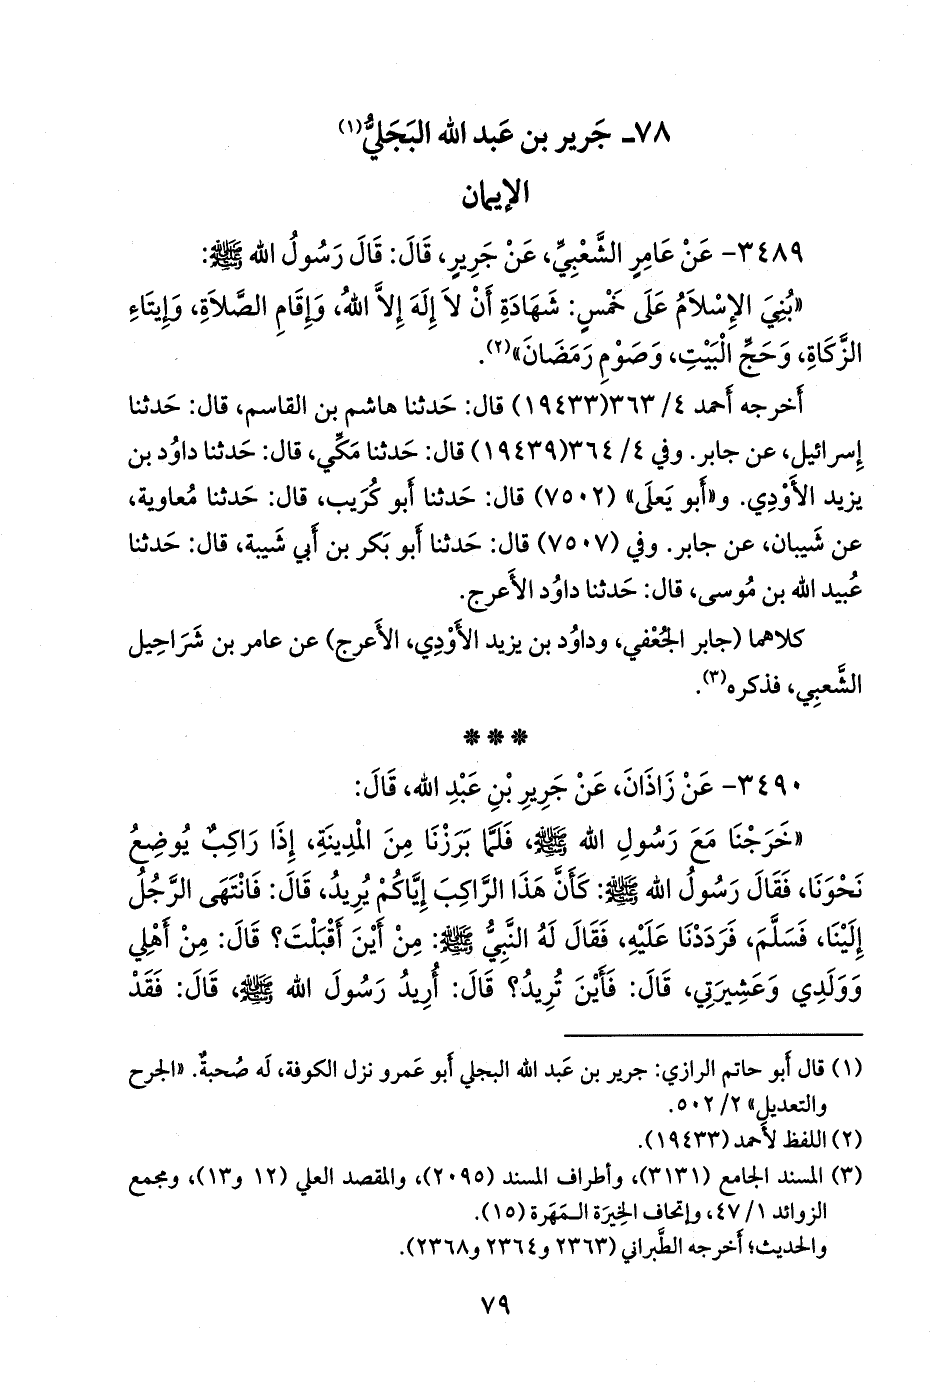 ٧٨ـ جَرير بن عَبد الله البَجَليُّ(١)
الإيمان
٣٤٨٩- عَنْ عَامِرٍ الشَّعْبِيِّ، عَنْ جَرِيرٍ، قَالَ: قَالَ رَسُولُ الله ﷺ:
«بُنِيَ الإِسْلاَمُ عَلَى خَمْسٍ: شَهَادَةِ أَنْ لاَ إِلَهَ إِلاَّ اللهُ، وَإِقَامِ الصَّلاَةِ، وَإِيتَاءِ
الزَّكَاةِ، وَحَجِّ الْبَيْتِ، وَصَوْمِ رَمَضَانَ»(٢).
أَخرجه أَحمد ٤/ ٣٦٣(١٩٤٣٣) قال: حَدثنا هاشم بن القاسم، قال: حَدثنا
إِسرائيل، عن جابر. وفي ٤/ ٣٦٤(١٩٤٣٩) قال: حَدثنا مَكِّي، قال: حَدثنا داوُد بن
يزيد الأَوْدِي. و«أَبو يَعلَى» (٧٥٠٢) قال: حَدثنا أَبو كُرَيب، قال: حَدثنا مُعاوية،
عن شَيبان، عن جابر. وفي (٧٥٠٧) قال: حَدثنا أَبو بَكر بن أَبي شَيبة، قال: حَدثنا
عُبيد الله بن مُوسى، قال: حَدثنا داوُد الأَعرج.
كلاهما (جابر الجُعْفي، وداوُد بن يزيد الأَوْدِي، الأَعرج) عن عامر بن شَرَاحِيل
الشَّعبِي، فذكره(٣).
***
٣٤٩٠- عَنْ زَاذَانَ، عَنْ جَرِيرِ بْنِ عَبْدِ الله، قَالَ:
«خَرَجْنَا مَعَ رَسُولِ الله ﷺ، فَلَمَّا بَرَزْنَا مِنَ الْمَدِينَةِ، إِذَا رَاكِبٌ يُوضِعُ
نَحْوَنَا، فَقَالَ رَسُولُ الله ﷺ: كَأَنَّ هَذَا الرَّاكِبَ إِيَّاكُمْ يُرِيدُ، قَالَ: فَانْتَهَى الرَّجُلُ
إِلَيْنَا، فَسَلَّمَ، فَرَدَدْنَا عَلَيْهِ، فَقَالَ لَهُ النَّبِيُّ ﷺ: مِنْ أَيْنَ أَقْبَلْتَ؟ قَالَ: مِنْ أَهْلِي
وَوَلَدِي وَعَشِيرَتِي، قَالَ: فَأَيْنَ تُرِيدُ؟ قَالَ: أُرِيدُ رَسُولَ الله ﷺ، قَالَ: فَقَدْ
(١) قال أَبو حاتم الرازي: جرير بن عَبد الله البجلي أَبو عَمرو نزل الكوفة، لَه صُحبةٌ. «الجرح
والتعديل» ٢/ ٥٠٢.
(٢) اللفظ لأَحمد (١٩٤٣٣).
(٣) المسند الجامع (٣١٣١)، وأطراف المسند (٢٠٩٥)، والمقصد العلي (١٢ و١٣)، ومجمع
الزوائد ١/ ٤٧، وإتحاف الخِيرَة المَهَرة (١٥).
والحديث؛ أَخرجه الطَّبراني (٢٣٦٣ و٢٣٦٤ و٢٣٦٨).
٧٩